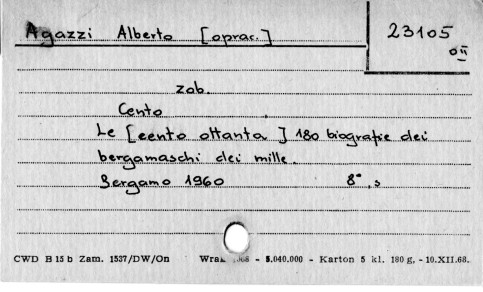 Agazzi Alberto [oprac.]
23105
OII
zob.
Cento
Le [cento ottanta] 180 biografie dei
bergamaschi dei mille.
Bergamo 1960 8°, s
CWD B 15 b Zam. 1537/DW/On - 5.040.000 - Karton 5 kl. 180 g. - 10.XII.68.